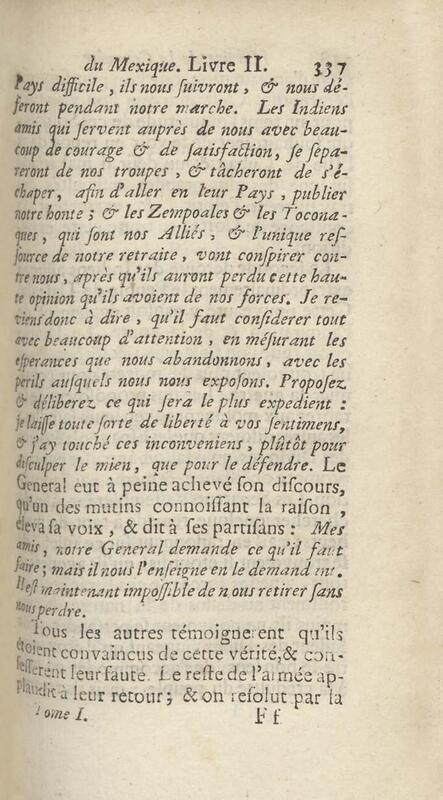 du Mexique. Livre II. 337
Pays difficile, ils nous ſuivront, & nous dé-
feront pendant notre marche. Les Indiens
amis qui ſervent auprès de nous avec beau-
coup de courage & de ſatisfaction, ſe ſepa-
reront de nos troupes, & tâcheront de s'é-
chaper, afin d'aller en leur Pays, publier
notre honte; & les Zempoales & les Tocona-
ques, qui ſont nos Alliés, & l'unique reſ-
ſource de notre retraite, vont conſpirer con-
tre nous, après qu'ils auront perdu cette hau-
te opinion qu'ils avoient de nos forces. Je re-
viens donc à dire, qu'il faut conſiderer tout
avec beaucoup d'attention, en méſurant les
eſperances que nous abandonnons, avec les
perils auſquels nous nous expoſons. Propoſez
& déliberez ce qui ſera le plus expedient:
je laiſſe toute ſorte de liberté à vos ſentimens,
& j'ay touché ces inconveniens, plûtôt pour
diſculper le mien, que pour le défendre. Le
General eut à peine achevé ſon diſcours,
qu'un des mutins connoiſſant la raiſon,
éleva ſa voix, & dit à ſes partiſans: Mes
amis, notre General demande ce qu'il faut
faire; mais il nous l'enſeigne en le demandant.
Il eſt maintenant impoſſible de nous retirer ſans
nous perdre.
Tous les autres témoignerent qu'ils
étoient convaincus de cette vérité, & con-
feſſerent leur faute. Le reſte de l'armée ap-
plaudit à leur retour; & on reſolut par la
Tome I. F f